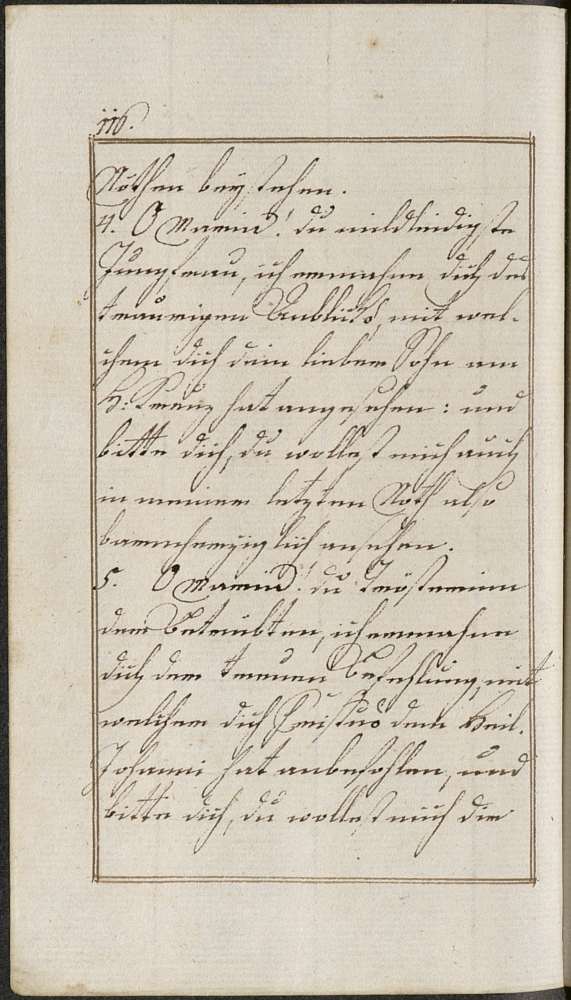 116.
Nöthen beystehen.
4. O Maria! du mildleidigste
Jungfrau, ich ermahne dich des
traurigen Anblicks, mit wel-
chem dich dein lieber Sohn am
H: Kreuz hat angesehen: und
bitte dich, du wollest mich auch
in meiner letzten Noth also
barmherziglich ansehen.
5. O Maria! du Trösterinn
der Betrübten, ich ermahne
dich der treuen Befehlung, mit
welcher dich Christus dem Heil.
Johanni hat anbefohlen, und
bitte dich, du wollest mich die